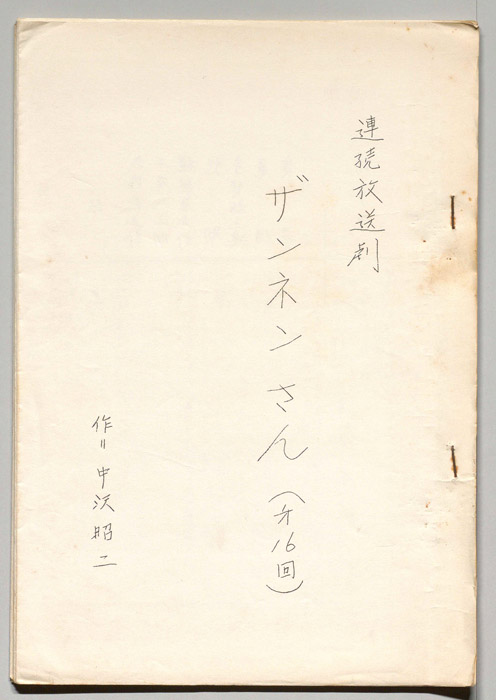 連続放送劇
ザンネンさん（才16回）
作＝中沢昭二